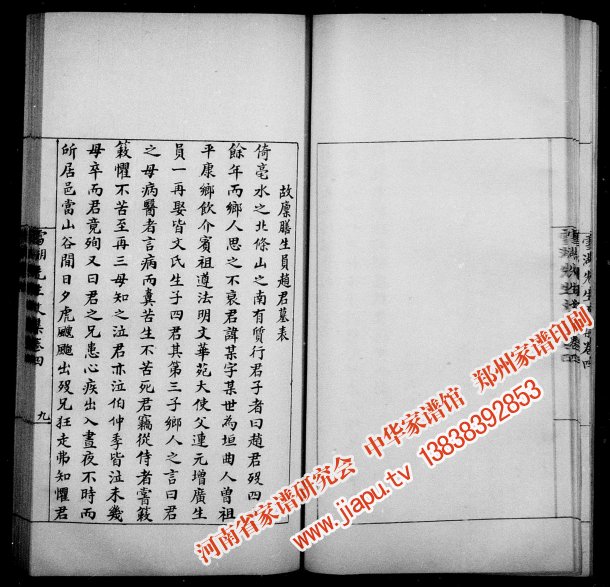 故廩膳生員趙君墓表
倚亳水之北條山之南有質行君子者曰趙君歿四
餘年而鄉人思之不衰君諱某字某世為垣曲人曾祖
平康鄉飲介賓祖遵法明文華苑大使父連元增廣生
員一再娶皆文氏生子四君其第三子鄉人之言曰君
之母病醫者言病而糞苦生不苦死君竊從侍者嘗簌
簌懼不苦至再三母知之泣君亦泣伯仲季皆泣未幾
母卒而君竟殉又曰君之兄患心疾出入晝夜不時而
所居邑當山谷間日夕虎颷颷出歿兄狂走弗知懼君
九
河南省家谱研究会 中华家谱馆 郑州家谱印刷
www.jiapu.tv 13838392853